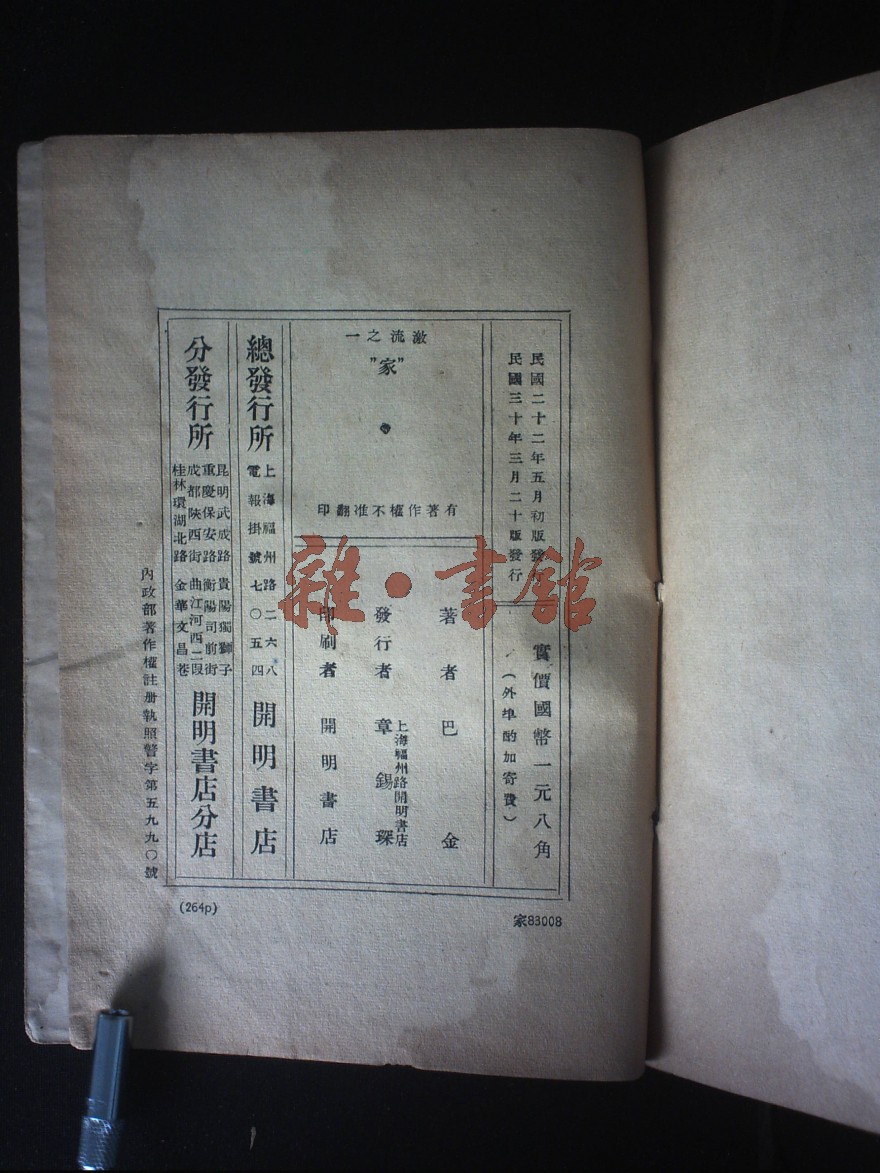 民國二十二年五月初版發行
民國三十年三月二十版發行
實價國幣一元八角
(外埠酌加寄費)
激流之一
"家"
有著作權不准翻印
著者 巴金
發行者 章錫琛
上海福州路開明書店
印刷者 開明書店
總發行所
上海福州路二六八
電報掛號七〇五四
開明書店
分發行所
昆明武成路 貴陽獨獅子
重慶保安路 衡陽司前街
成都陝西街 曲江河西二段
桂林環湖北路 金華文昌巷
開明書店分店
內政部著作權註册執照警字第五九九〇號
(264p)
家83008
雜·書館